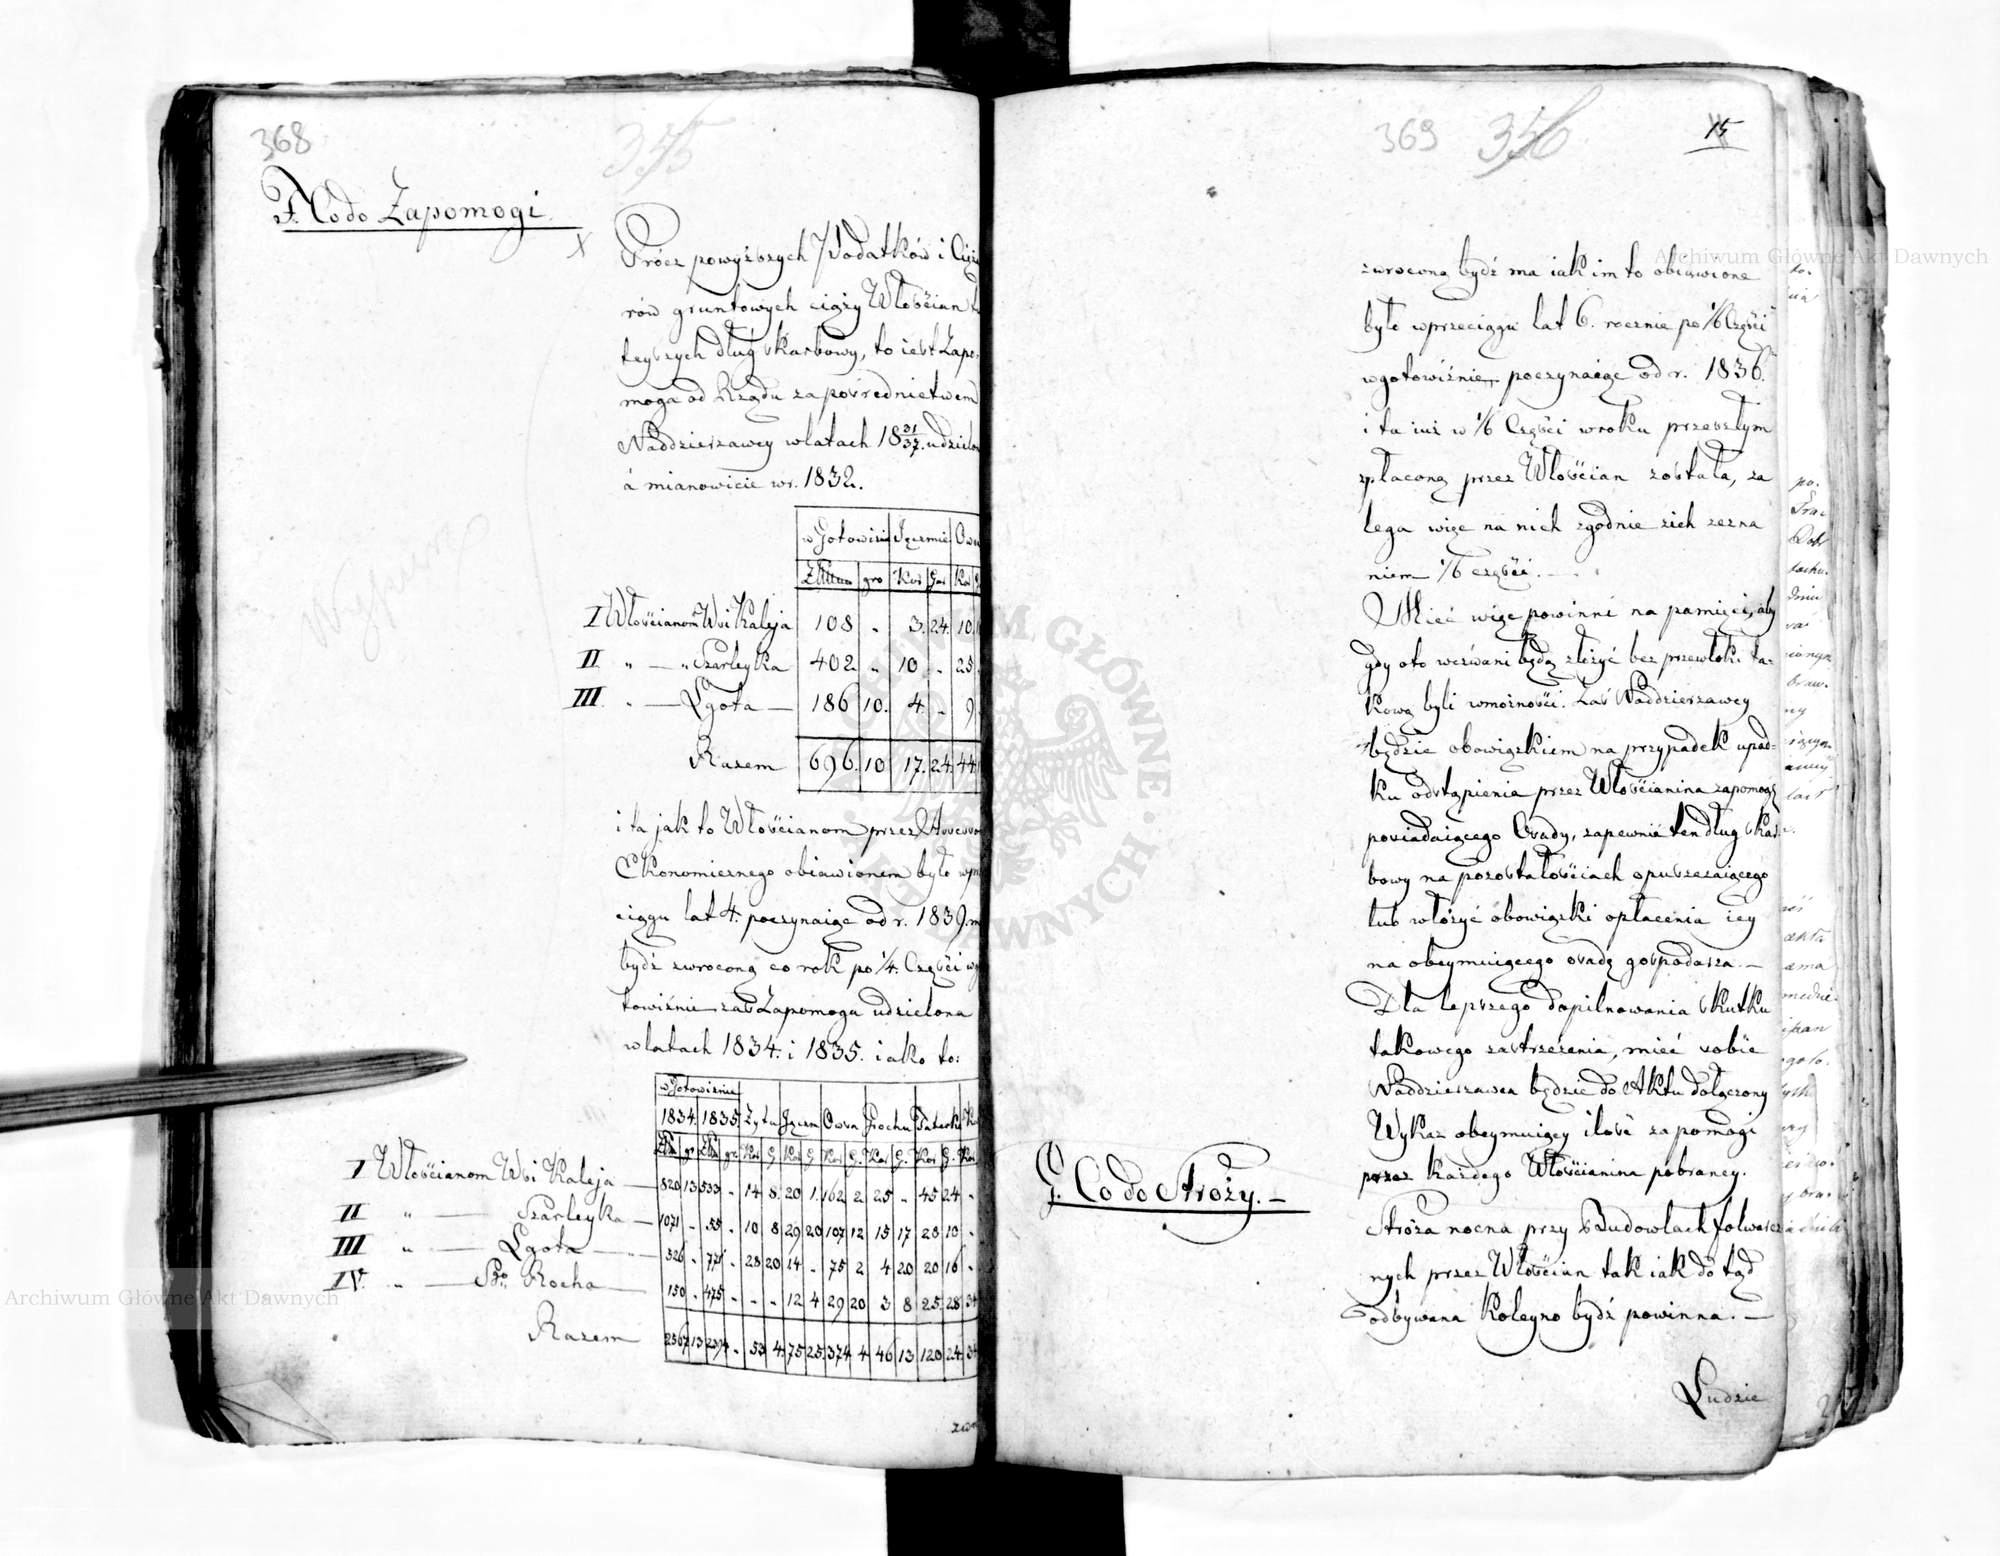 368
355
F. Co do Zapomogi.
X
Prócz powyższych Podatków i Cięża
rów gruntowych ciąży Włościan tu
teyszych dług skarbowy, to iest Zapo-
moga od Rządu za pośrednictwem
Naddzierzawcy w latach 18 31/32. udzielo
á mianowicie w r. 1832.
w Gotowizni Jęczmie Ows
gro Kor Gar Kor
I Włościanom Wsi Kaleja 108 „ 3. 24. 10.
II „ — „ Szarleyka 402 „ 10 „ 25
III „ — Lgota — 186 10. 4. „ 9
Razem 696. 10 17. 24. 44
i ta jak to Włościanom przez Assesso
Ekonomicznego obiawionem było w prze
ciągu lat 4. poczynaiąc od r. 1839. m
bydź zwroconą co rok po 1/4. Części w go
towiźnie zaś Zapomoga udzielona
w latach 1834. i 1835. iako to:
w Gotowiznie
1834. 1835. Żyta Jęczm Owsa Grochu Tatarki
gr gr Kor G Kor G Kor G. Kor G. Kor G. Kor
I Włościanom Wsi Kaleja — 820 13 533 „ 14 8. 20 1. 162 2 25 „ 45 24 „
II „ — Szarleyka — 1071 „ 55 „ 10 8 29 20 107 12 15 17 28 10 „
III „ — Lgota — 526 „ 771 „ 28 20 14 „ 75 2 4 20 20 16 „
IV. „ — Sgo Rocha — 150 „ 475 „ „ „ 12 4 29 20 3 8 25. 28 34
Razem 2567 13 „ 53 4. 75 25. 374 4 46 13 120 24. 34
Wypisano
369 356 15
zwroconą bydź ma iak im to obiawione
było w przeciągu lat 6. rocznie po 1/6 Części
w gotowiźnie poczynaiąc od r. 1836.
i ta iuż w 1/6 Części w roku przeszłym
zpłaconą przez Włościan została, za
lega więc na nich zgodnie z ich zezna
niem 1/6 części. —
Mieć więc powinni na pamięci, aby
gdy oto wezwani będą złożyć bez przewłoki ta-
kową byli w możności. Zaś Naddzierzawcy
będzie obowiązkiem na przypadek upad-
ku odstąpienia przez Włościanina zapomogę
posiadaiącego Osady, zapewnić ten dług skar-
bowy na pozostałościach opuszczaiącego
lub włożyć obowiązki opłacenia iey
na obeymuiącego osadę gospodarza. —
Dla lepszego dopilnowania skutku
takowego zastrzeżenia, mieć sobie
Naddzierzawca będzie do Aktu dołączony
Wykaz obeymuiący ilość zapomogi
przez każdego Włościanina pobraney.
G. Co do Stroży. —
Stróża nocna przy Budowlach folwarcz
nych przez Włościan tak iak do tąd
odbywana koleyno bydź powinna. —
Ludzie
Archiwum Główne Akt Dawnych
Archiwum Główne Akt Dawnych
ARCHIWUM GŁÓWNE AKT DAWNYCH